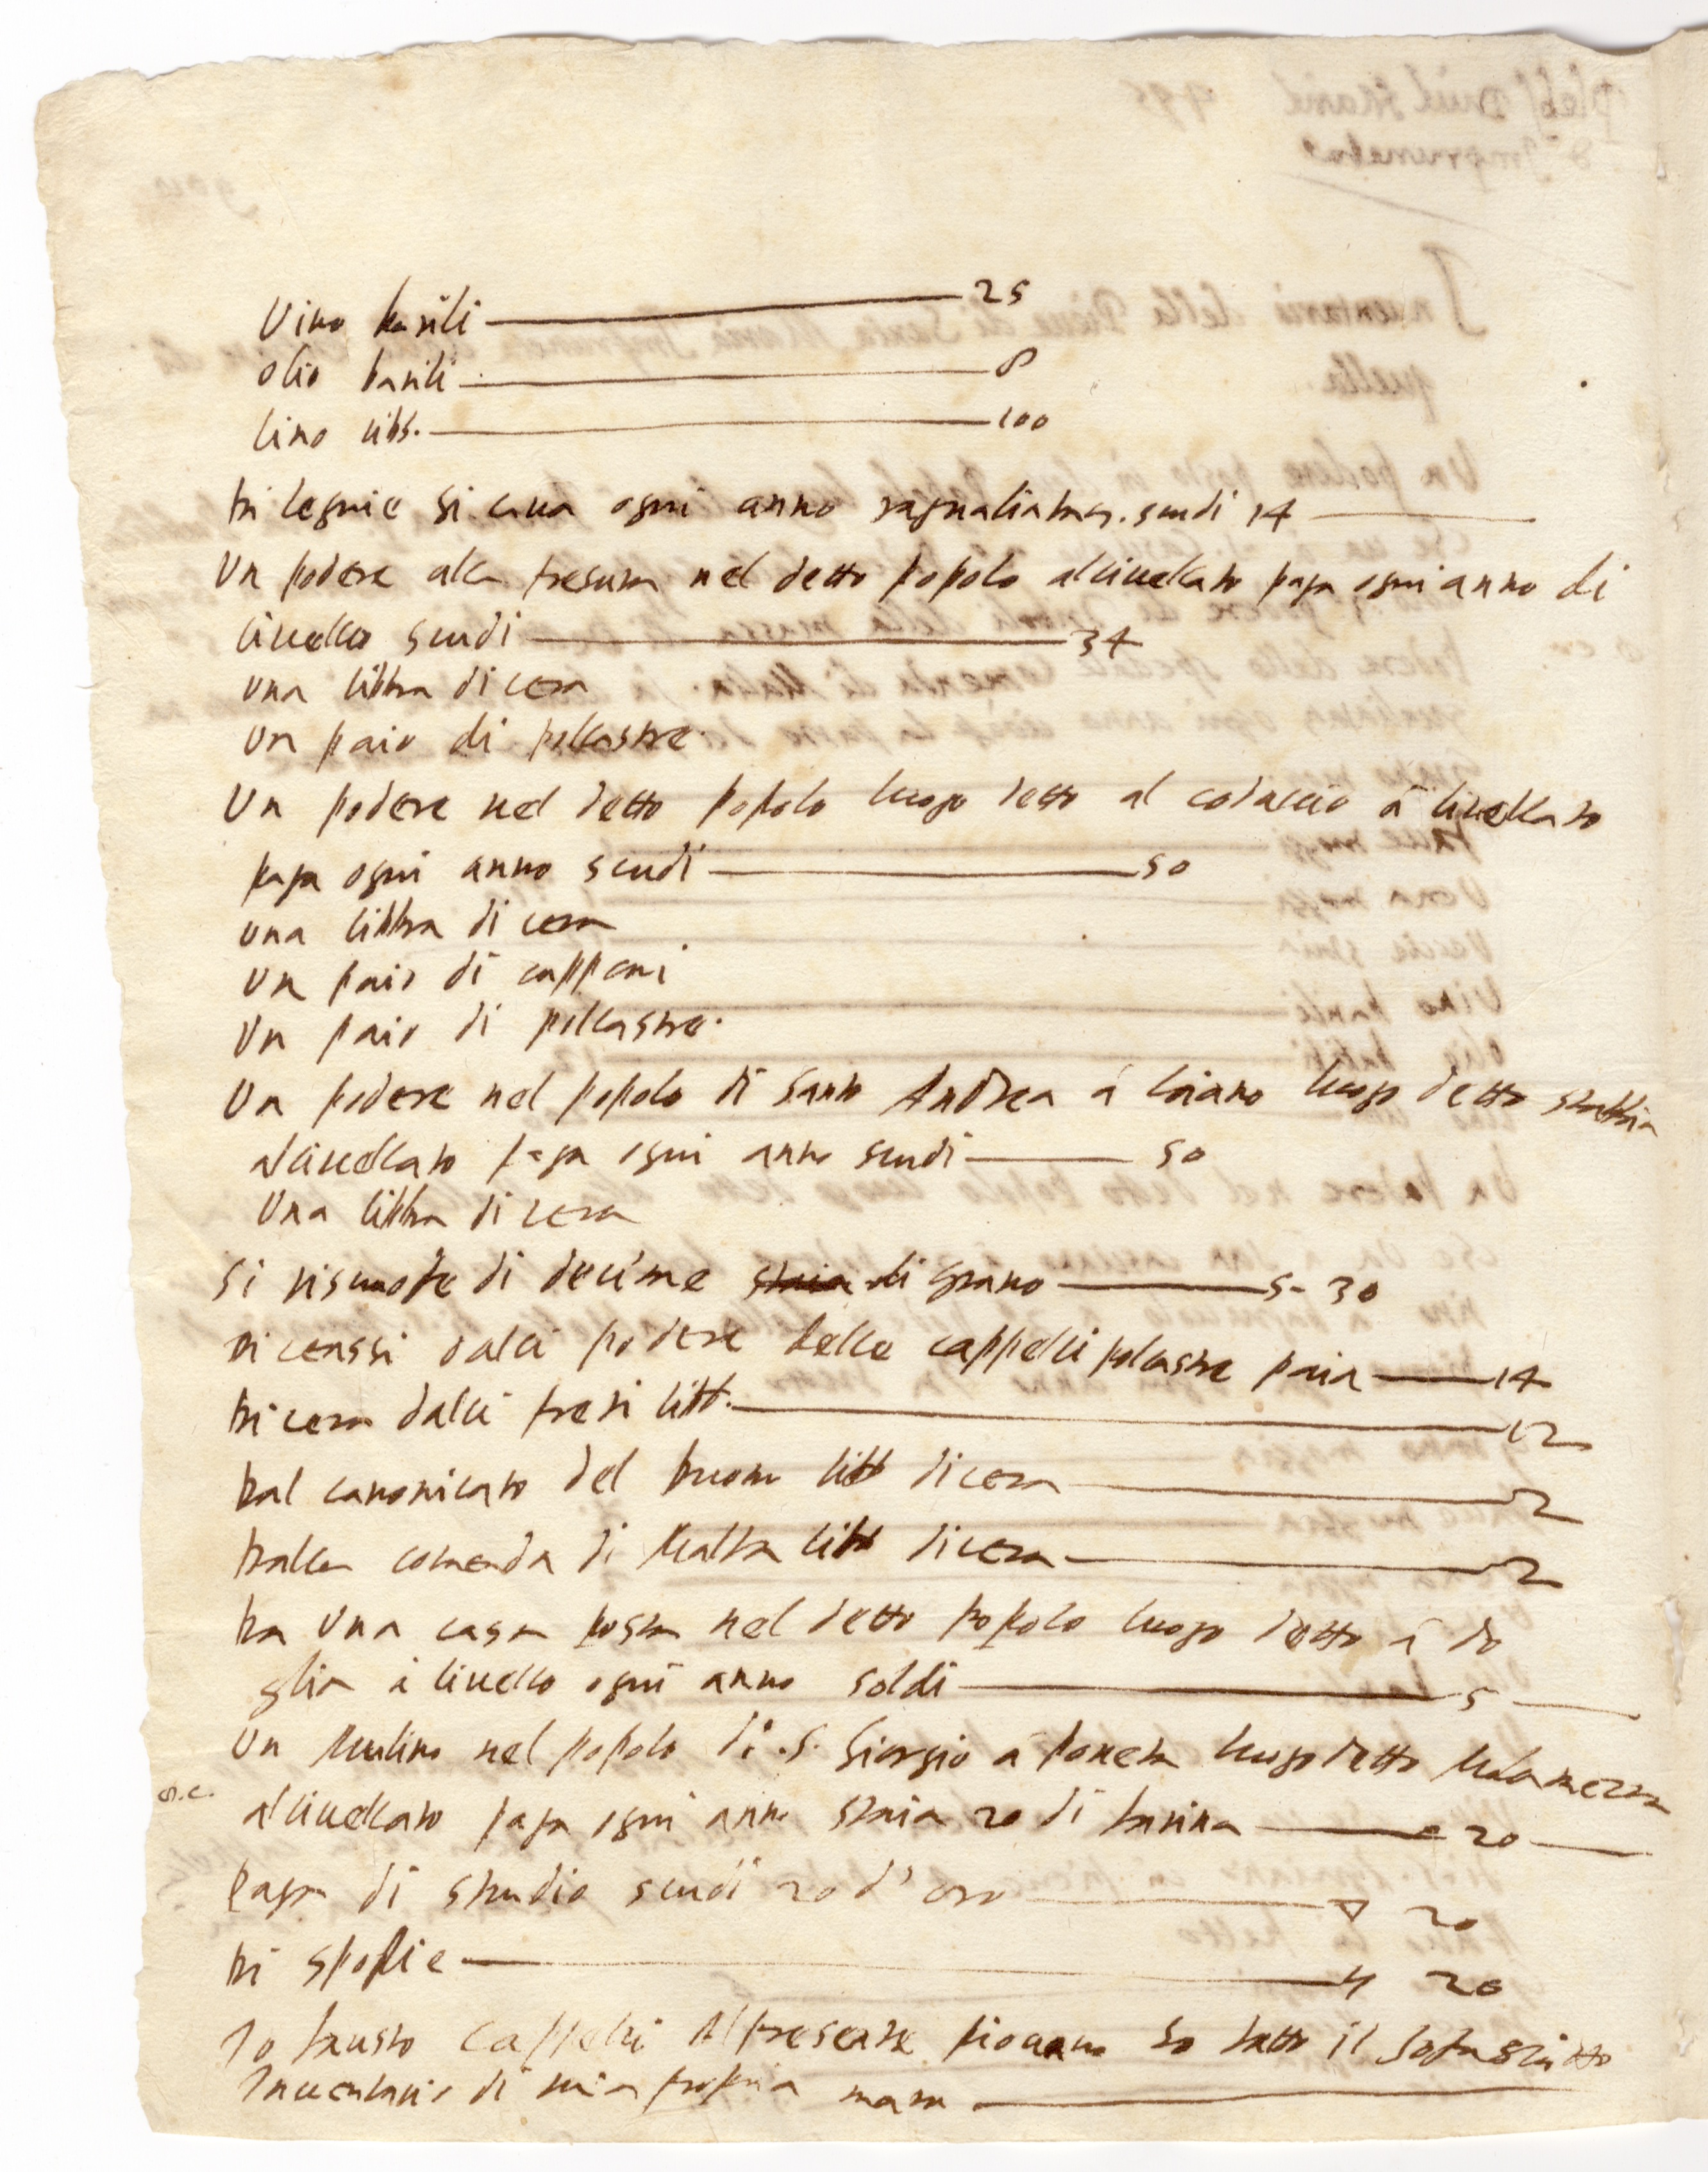 Vino barili 25
olio barili 8
lino libb. 100
Di legnie si cava ogni anno scudi 14
Un podere alla nel detto popolo alivellato paga ogni anno di
livello scudi 34
una libbra di cera
Un paio di pollastre.
Un podere nel detto popolo luogo detto al colaccio à livellato
paga ogni anno scudi 50
una libbra di cera
Un paio di capponi
Un paio di pollastre.
Un podere nel popolo di Santo Andrea à luogo detto
alivellato paga ogni anno scudi 50
Una libbra di cera
Si riscuote di decime staia di grano s- 30
Di censsi dalli podere delle cappelli polastre paia 14
Di cera dalli libb. 12
Dal canonicato del libb di cera 2
Dalla comenda di Malta libb di cera 2
Da Una casa posta nel detto popolo luogo detto à do
glia à livello ogni anno soldi 5
Un Mulino nel popolo di .S. Giorgio à luogo detto
alivellato paga ogni anno staia 20 di farina 20
Paga di studio scudi 20 d'oro ▽ 20
Di 20
Io fausto Cappelli Al presente piovano fo fatto il
Inventario di mia propria mano